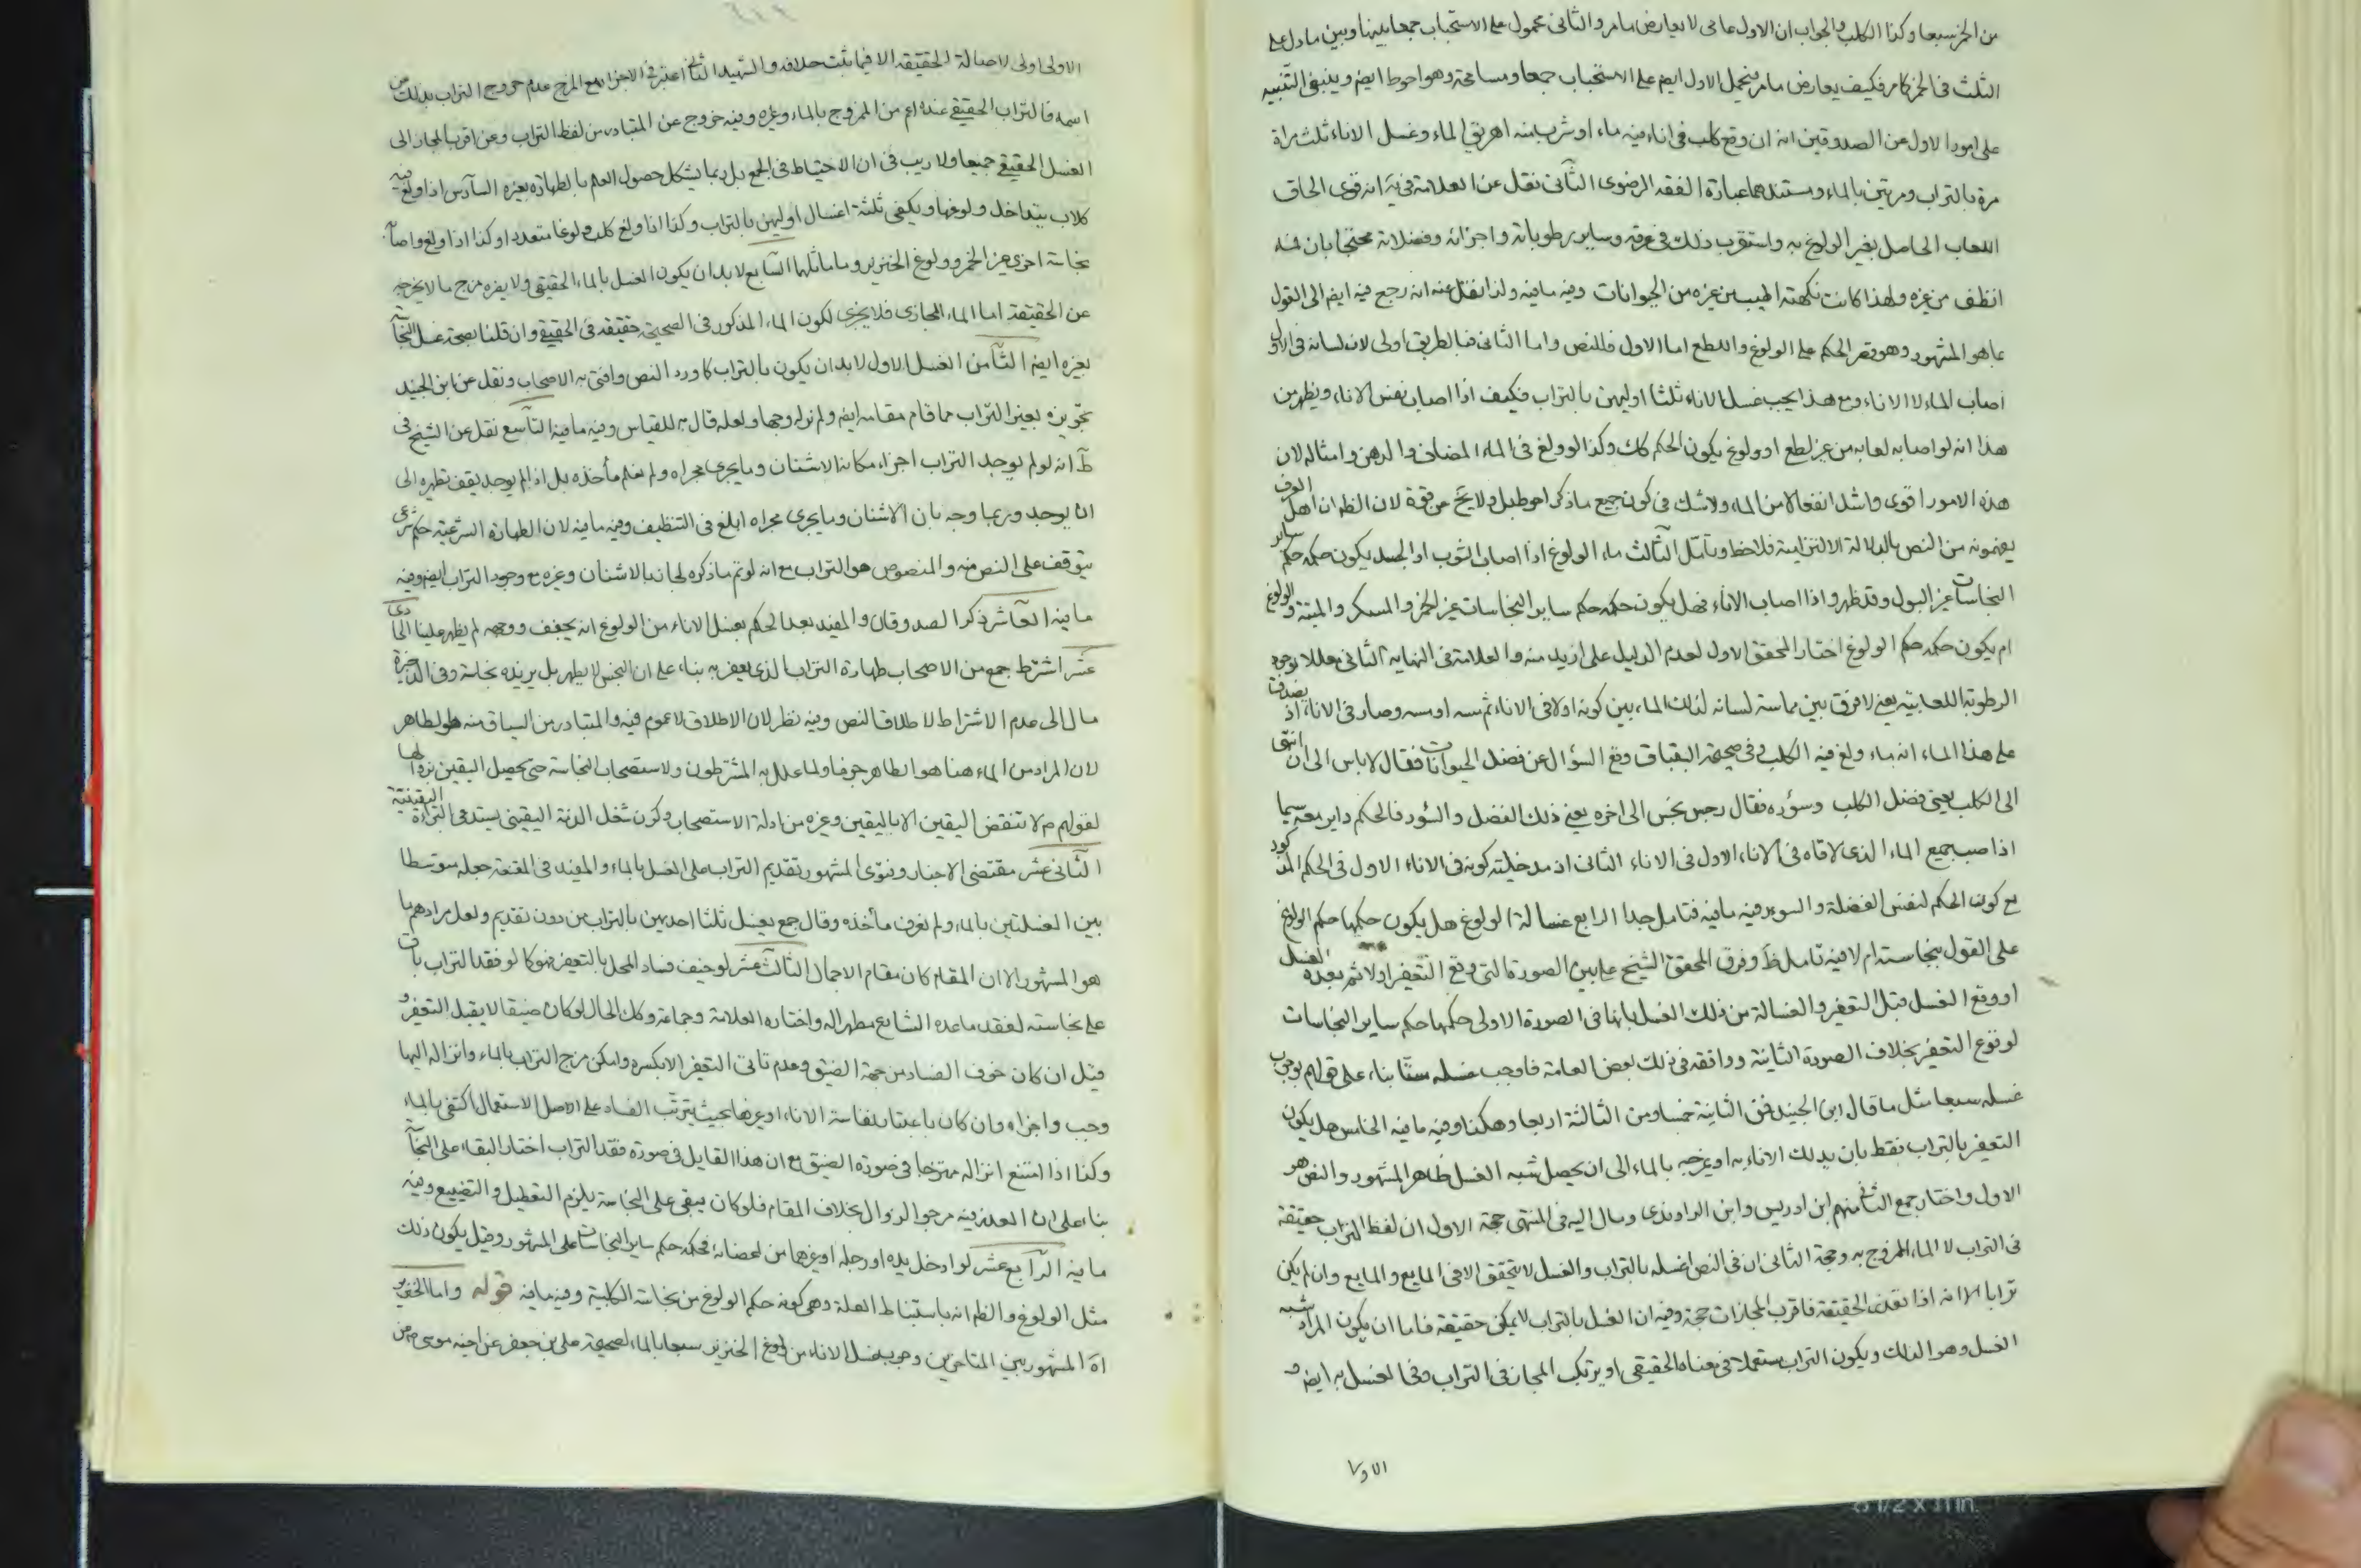 من الخمر سبعا وكذا الكلب والجواب ان الاول عامى لا يعارض ما مر والثانى محمول على الاستحباب جمعا بينها وبين ما دل على
الثلث فى الخمر كما مر فكيف يعارض ما مر فيحمل الاول ايضا على الاستحباب جمعا ومسامحة وهو احوط ايضا وينبغى التنبيه
على امور الاول عن الصدوقين انه ان وقع كلب فى اناء فيه ماء او شرب منه اهريق الماء وغسل الاناء ثلث مراة
مرة بالتراب ومرتين بالماء ومستندهما عبارة الفقه الرضوى الثانى نقل عن العلامة فى يه انه قوى الحاق
اللعاب الحاصل بغير الولوغ به واستقرب ذلك فى عرقه وساير رطوباته واجزائه وفضلاته محتجا بان فمه
انظف من غيره ولهذا كانت نكهته اطيب من غيره من الحيوانات وفيه ما فيه ولذا نقل عنه انه رجع فيه ايضا الى القول
بما هو المشهور وهو قصر الحكم على الولوغ واللطع اما الاول فللنص واما الثانى فبالطريق اولى لان لسانه فى الاول
اصاب الماء لا الاناء ومع هذا يجب غسل الاناء ثلثا اوليهن بالتراب فكيف اذا اصاب نفس الاناء ويظهر من
هذا انه لو اصابه لعابه من غير لطع او ولوغ يكون الحكم كك وكذا لو ولغ فى الماء المضاف والدهن وامثاله لان
هذه الامور اقوى واشد انفعالا من الماء ولا شك فى كون جميع ما ذكر احوط بل ولا يخ عن قوة لان الظ ان اهل العرف
يفهمونه من النص بالدلالة الالتزامية فلاحظ وتامل الثالث ماء الولوغ اذا اصاب الثوب او الجسد يكون حكمه حكم ساير
النجاسات غير البول وقد ظهر واذا اصاب الاناء فهل يكون حكمه حكم ساير النجاسات غير الخمر والمسكر والميتة والولوغ
ام يكون حكمه حكم الولوغ اختار المحقق الاول لعدم الدليل على ازيد منه والعلامة فى النهاية الثانى معللا بوجود
الرطوبة اللعابية يعنى لا فرق بين مماسة لسانه لذلك الماء بين كونه اولا فى الاناء ثم مسه او مسه وصار فى الاناء اذ يصدق
على هذا الماء انه ماء ولغ فيه الكلب وفى صحيحة البقباق وقع السؤال عن فضل الحيوانات فقال لا باس الى ان انتهى
الى الكلب يعنى فضل الكلب وسؤره فقال رجس نجس الى اخره يعنى ذلك الفضل والسؤر فالحكم داير معه سيما
اذا صب جميع الماء الذى لاقاه فى الاناء الاول فى الاناء الثانى اذ مدخلية كونه فى الاناء الاول فى الحكم المذكور
مع كون الحكم لنفس الفضلة والسور فيه ما فيه فتامل جدا الرابع غسالة الولوغ هل يكون حكمها حكم الولوغ
على القول بنجاسته ام لا فيه تامل ظ وفرق المحقق الشيخ على بين الصورة التى وقع التعفير اولا ثم بعده الغسل
او وقع الغسل قبل التعفير والغسالة من ذلك الغسل بانها فى الصورة الاولى حكمها حكم ساير النجاسات
لوقوع التعفير بخلاف الصورة الثانية ووافقه فى ذلك بعض العامة فاوجب غسله ستا بناء على قولهم بوجوب
غسله سبعا مثل ما قال ابن الجنيد فمن الثانية خمسا ومن الثالثة اربعا وهكذا وفيه ما فيه الخامس هل يكون
التعفير بالتراب فقط بان يدلك الاناء به او يمزجه بالماء الى ان يحصل شبه الغسل ظاهر المشهور والنص هو
الاول واختار جمع الثانى منهم ابن ادريس وابن الراوندى ومال اليه فى المنتهى حجة الاول ان لفظ التراب حقيقة
فى التراب لا الماء الممزوج به وحجة الثانى ان فى النص اغسله بالتراب والغسل لا يتحقق الا فى المايع والمايع وان لم يكن
ترابا الا انه اذا تعذر الحقيقة فاقرب المجازات حجة وفيه ان الغسل بالتراب لا يمكن حقيقة فاما ان يكون المراد شبه
الغسل وهو الدلك ويكون التراب مستعملا فى معناه الحقيقى او يرتكب المجاز فى التراب وفى الغسل به ايضا و
الاولى
الاولى اولى لاصالة الحقيقة الا فيما ثبت خلافه والشهيد الثانى اعتبر فى الاجزاء مع المزج عدم خروج التراب بذلك عن
اسمه فالتراب الحقيقى عنده اعم من الممزوج بالماء وغيره وفيه خروج عن المتبادر من لفظ التراب وعن اقرب المجاز الى
الغسل الحقيقى جميعا ولا ريب فى ان الاحتياط فى الجمع بل ربما يشكل حصول العلم بالطهارة بغيره السادس اذا ولغ فيه
كلاب يتداخل ولوغها ويكفى ثلثة اغسال اوليهن بالتراب وكذا اذا ولغ كلب ولوغا متعددا وكذا اذا ولغ واصابه
نجاسة اخرى غير الخمر وولوغ الخنزير وما ماثلهما السابع لا بد ان يكون الغسل بالماء الحقيقى ولا يضره مزج ما لا يخرجه
عن الحقيقة اما الماء المجازى فلا يجزى لكون الماء المذكور فى الصحيحة حقيقة فى الحقيقى وان قلنا بصحة غسل النجاسة
بغيره ايضا الثامن الغسل الاول لا بد ان يكون بالتراب كما ورد النص وافتى به الاصحاب ونقل عن ابن الجنيد
تجويزه بغير التراب مما قام مقامه ايضا ولم نر له وجها ولعله قال به للقياس وفيه ما فيه التاسع نقل عن الشيخ فى
ط انه لو لم يوجد التراب اجزاء مكانه الاشنان وما يجرى مجراه ولم نعلم مأخذه بل اذا لم يوجد يقف تطهيره الى
ان يوجد وربما وجه بان الاشنان وما يجرى مجراه ابلغ فى التنظيف وفيه ما فيه لان الطهارة الشرعية حكم شرعى
يتوقف على النص منه والمنصوص هو التراب مع انه لو تم ما ذكره لجاز بالاشنان وغيره مع وجود التراب ايضا وفيه
ما فيه العاشر ذكر الصدوقان والمفيد بعد الحكم بغسل الاناء من الولوغ انه يجفف ووجهه لم يظهر علينا الحادى
عشر اشترط جمع من الاصحاب طهارة التراب الذى يعفر به بناء على ان النجس لا يطهر بل يزيده نجاسة وفى الذخيرة
مال الى عدم الاشتراط لاطلاق النص وفيه نظر لان الاطلاق لا عموم فيه والمتبادر من السياق منه هو الطاهر
لان المراد من الماء هنا هو الطاهر جزما ولما علل به المشترطون ولاستصحاب النجاسة حتى يحصل اليقين بزوالها
لقولهم م لا تنقض اليقين الا باليقين وغيره من ادلة الاستصحاب وكون شغل الذمة اليقينى يستدعى البراءة اليقينية
الثانى عشر مقتضى الاخبار وفتوى المشهور تقديم التراب على الغسل بالماء والمفيد فى المقنعة جعله متوسطا
بين الغسلتين بالماء ولم نعرف مأخذه وقال جمع يغسل ثلثا احديهن بالتراب من دون تقديم ولعل مرادهم ما
هو المشهور الا ان المقام كان مقام الاجمال الثالث عشر لو خيف فساد المحل بالتعفير فهو كما لو فقد التراب باق
على نجاسته لفقد ما عده الشارع مطهرا له واختاره العلامة وجماعة وكك الحال لو كان ضيقا لا يقبل التعفير و
قيل ان كان خوف الفساد من جهة الضيق وعدم تاتى التعفير الا بكسره وامكن مزج التراب بالماء وانزاله اليها
وجب واجزاه وان كان باعتبار نفاسة الاناء او غيرها بحيث يترتب الفساد على اصل الاستعمال اكتفى بالماء
وكذا اذا امتنع انزاله ممتزجا فى صورة الضيق مع ان هذا القايل فى صورة فقد التراب اختار البقاء على النجاسة
بناء على ان العذر فيه مرجو الزوال بخلاف المقام فلو كان يبقى على النجاسة يلزم التعطيل والتضييع وفيه
ما فيه الرابع عشر لو ادخل يده او رجله او غيرهما من اعضائه فحكمه حكم ساير النجاسات على المشهور وقيل يكون ذلك
مثل الولوغ والظ انه باستنباط العلة وهى كونه حكم الولوغ من نجاسة الكلبية وفيه ما فيه قوله واما الخنزير
اه المشهور بين المتاخرين وجوب غسل الاناء من ولوغ الخنزير سبعا بالماء لصحيحة على بن جعفر عن اخيه موسى م عن